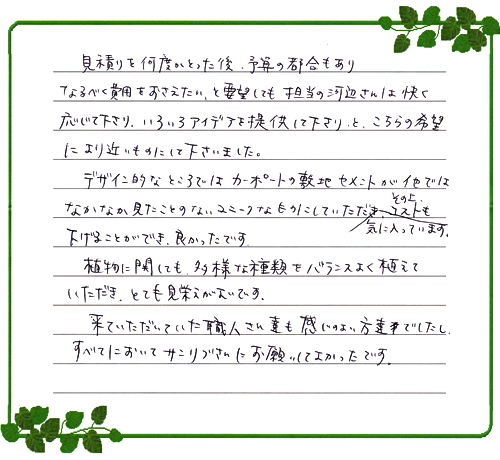 見積りを何度かとった後、予算の都合もあり
なるべく費用をおさえたい、と要望しても担当の河辺さんは快く
応じて下さり、いろいろアイデアを提供して下さり、と、こちらの希望
により近いものにして下さいました。
デザイン的なところではカーポートの敷地セメントが他では
なかなか見たことのないユニークなものにしていただき、その上、コストも
下げることができ、良かったです。気に入っています。
植物に関しても、多様な種類をバランスよく植えて
いただき、とても見栄えがよいです。
来ていただいていた職人さん達も感じのよい方達でしたし、
すべてにおいてサンリブさんにお願いしてよかったです。